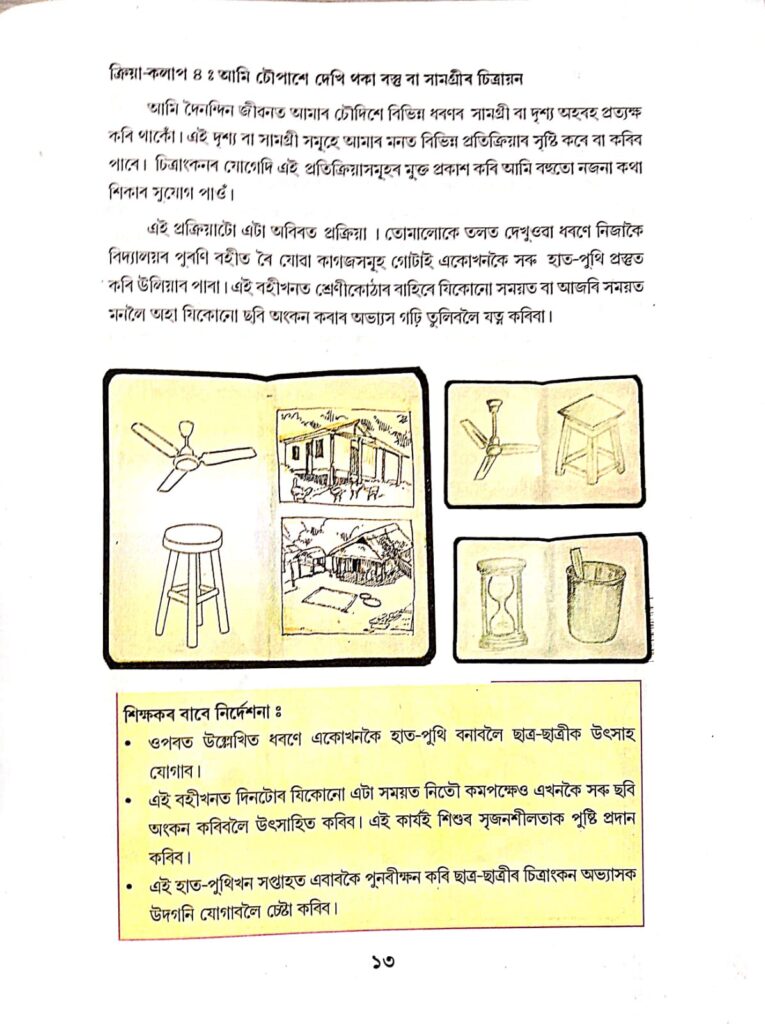 ক্ৰিয়া-কলাপ ৪ : আমি চৌপাশে দেখি থকা বস্তু বা সামগ্ৰীৰ চিত্ৰায়ন
আমি দৈনন্দিন জীৱনত আমাৰ চৌদিশে বিভিন্ন ধৰণৰ সামগ্ৰী বা দৃশ্য অহৰহ প্ৰত্যক্ষ
কৰি থাকোঁ। এই দৃশ্য বা সামগ্ৰী সমূহে আমাৰ মনত বিভিন্ন প্ৰতিক্ৰিয়াৰ সৃষ্টি কৰে বা কৰিব
পাৰে। চিত্ৰাংকনৰ যোগেদি এই প্ৰতিক্ৰিয়াসমূহৰ মুক্ত প্ৰকাশ কৰি আমি বহুতো নজনা কথা
শিকাৰ সুযোগ পাওঁ।
এই প্ৰক্ৰিয়াটো এটা অবিৰত প্ৰক্ৰিয়া । তোমালোকে তলত দেখুওৱা ধৰণে নিজাকৈ
বিদ্যালয়ৰ পুৰণি বহীত ৰৈ যোৱা কাগজসমূহ গোটাই একোখনকৈ সৰু হাত-পুথি প্ৰস্তুত
কৰি উলিয়াব পাৰা। এই বহীখনত শ্ৰেণীকোঠাৰ বাহিৰে যিকোনো সময়ত বা আজৰি সময়ত
মনলৈ অহা যিকোনো ছবি অংকন কৰাৰ অভ্যাস গঢ়ি তুলিবলৈ যত্ন কৰিবা।
শিক্ষকৰ বাবে নিৰ্দেশনা :
• ওপৰত উল্লেখিত ধৰণে একোখনকৈ হাত-পুথি বনাবলৈ ছাত্ৰ-ছাত্ৰীক উৎসাহ
যোগাব।
• এই বহীখনত দিনটোৰ যিকোনো এটা সময়ত নিতৌ কমপক্ষেও এখনকৈ সৰু ছবি
অংকন কৰিবলৈ উৎসাহিত কৰিব। এই কাৰ্যই শিশুৰ সৃজনশীলতাক পুষ্টি প্ৰদান
কৰিব।
• এই হাত-পুথিখন সপ্তাহত এবাৰকৈ পুনৰীক্ষন কৰি ছাত্ৰ-ছাত্ৰীৰ চিত্ৰাংকন অভ্যাসক
উদগনি যোগাবলৈ চেষ্টা কৰিব।
১৩